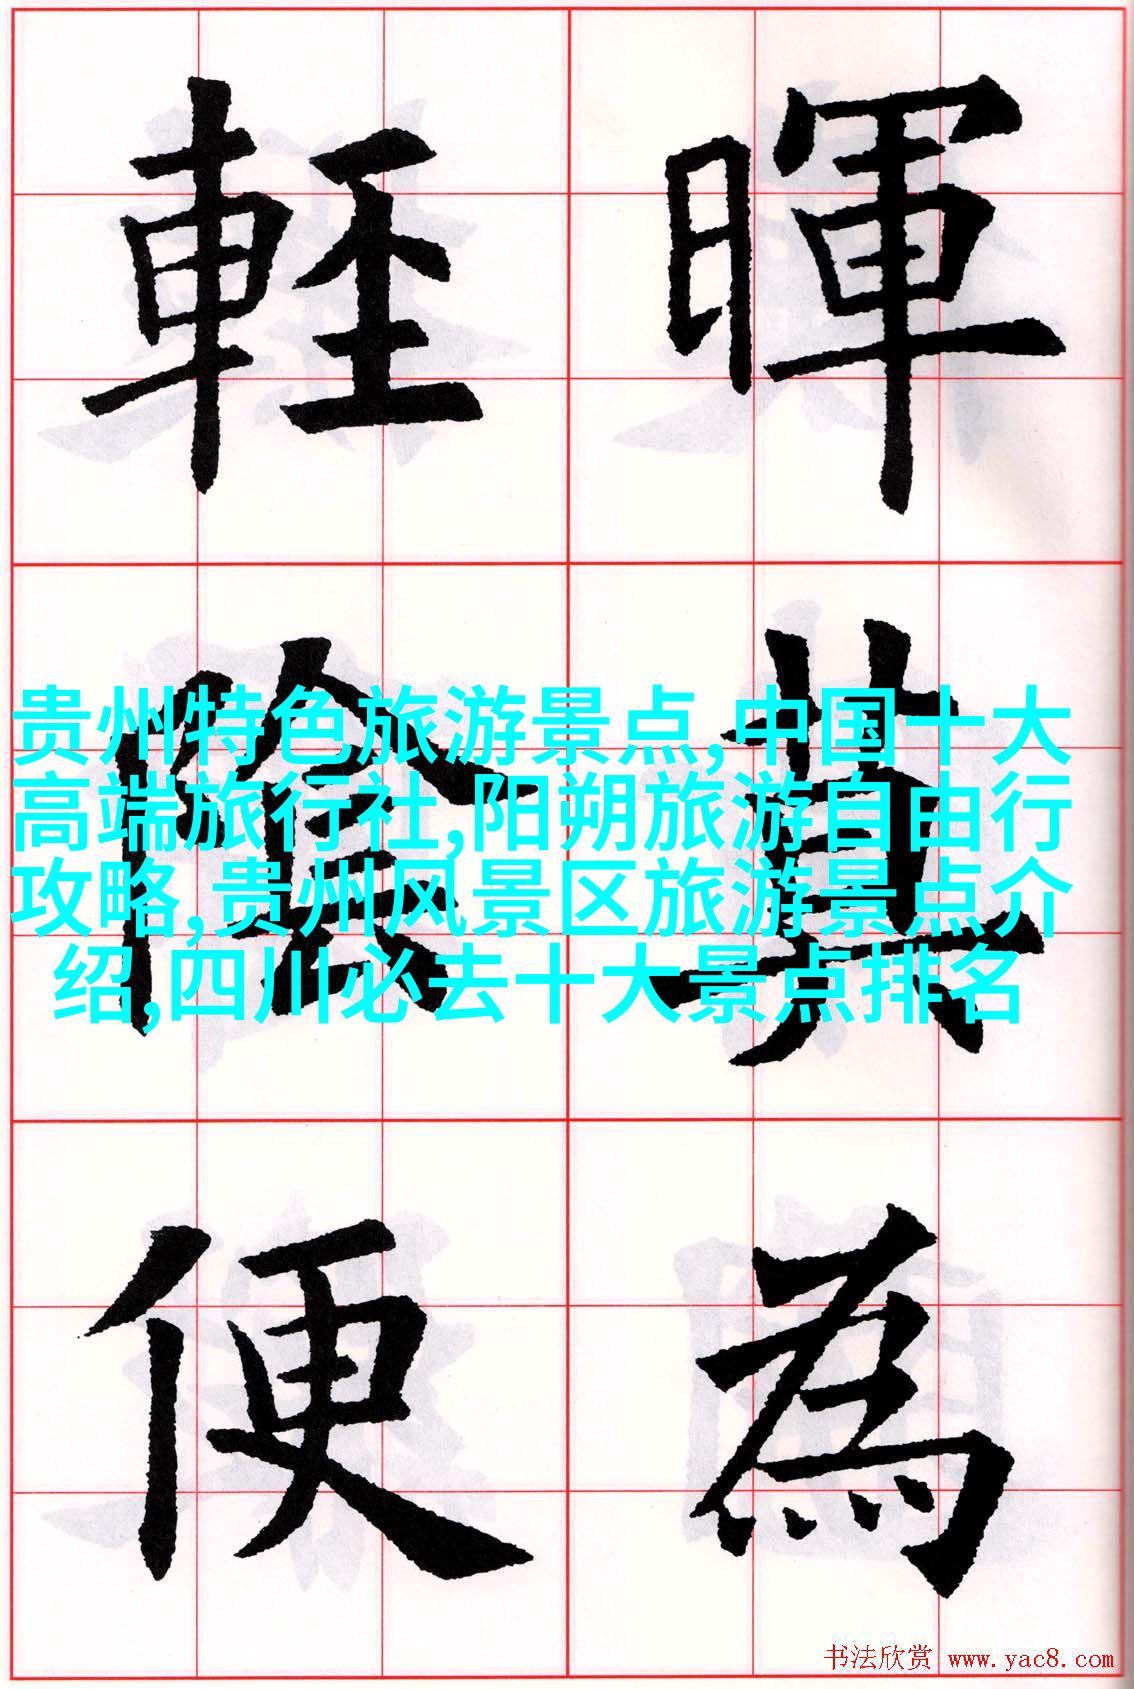 輕 暉
陰 莫
便 為
贵州特色旅游景点,中国十大
高端旅行社,阳朔旅游自由行
攻略,贵州风景区旅游景点介
绍,四川必去十大景点排名
书法欣赏 www.yac8.com